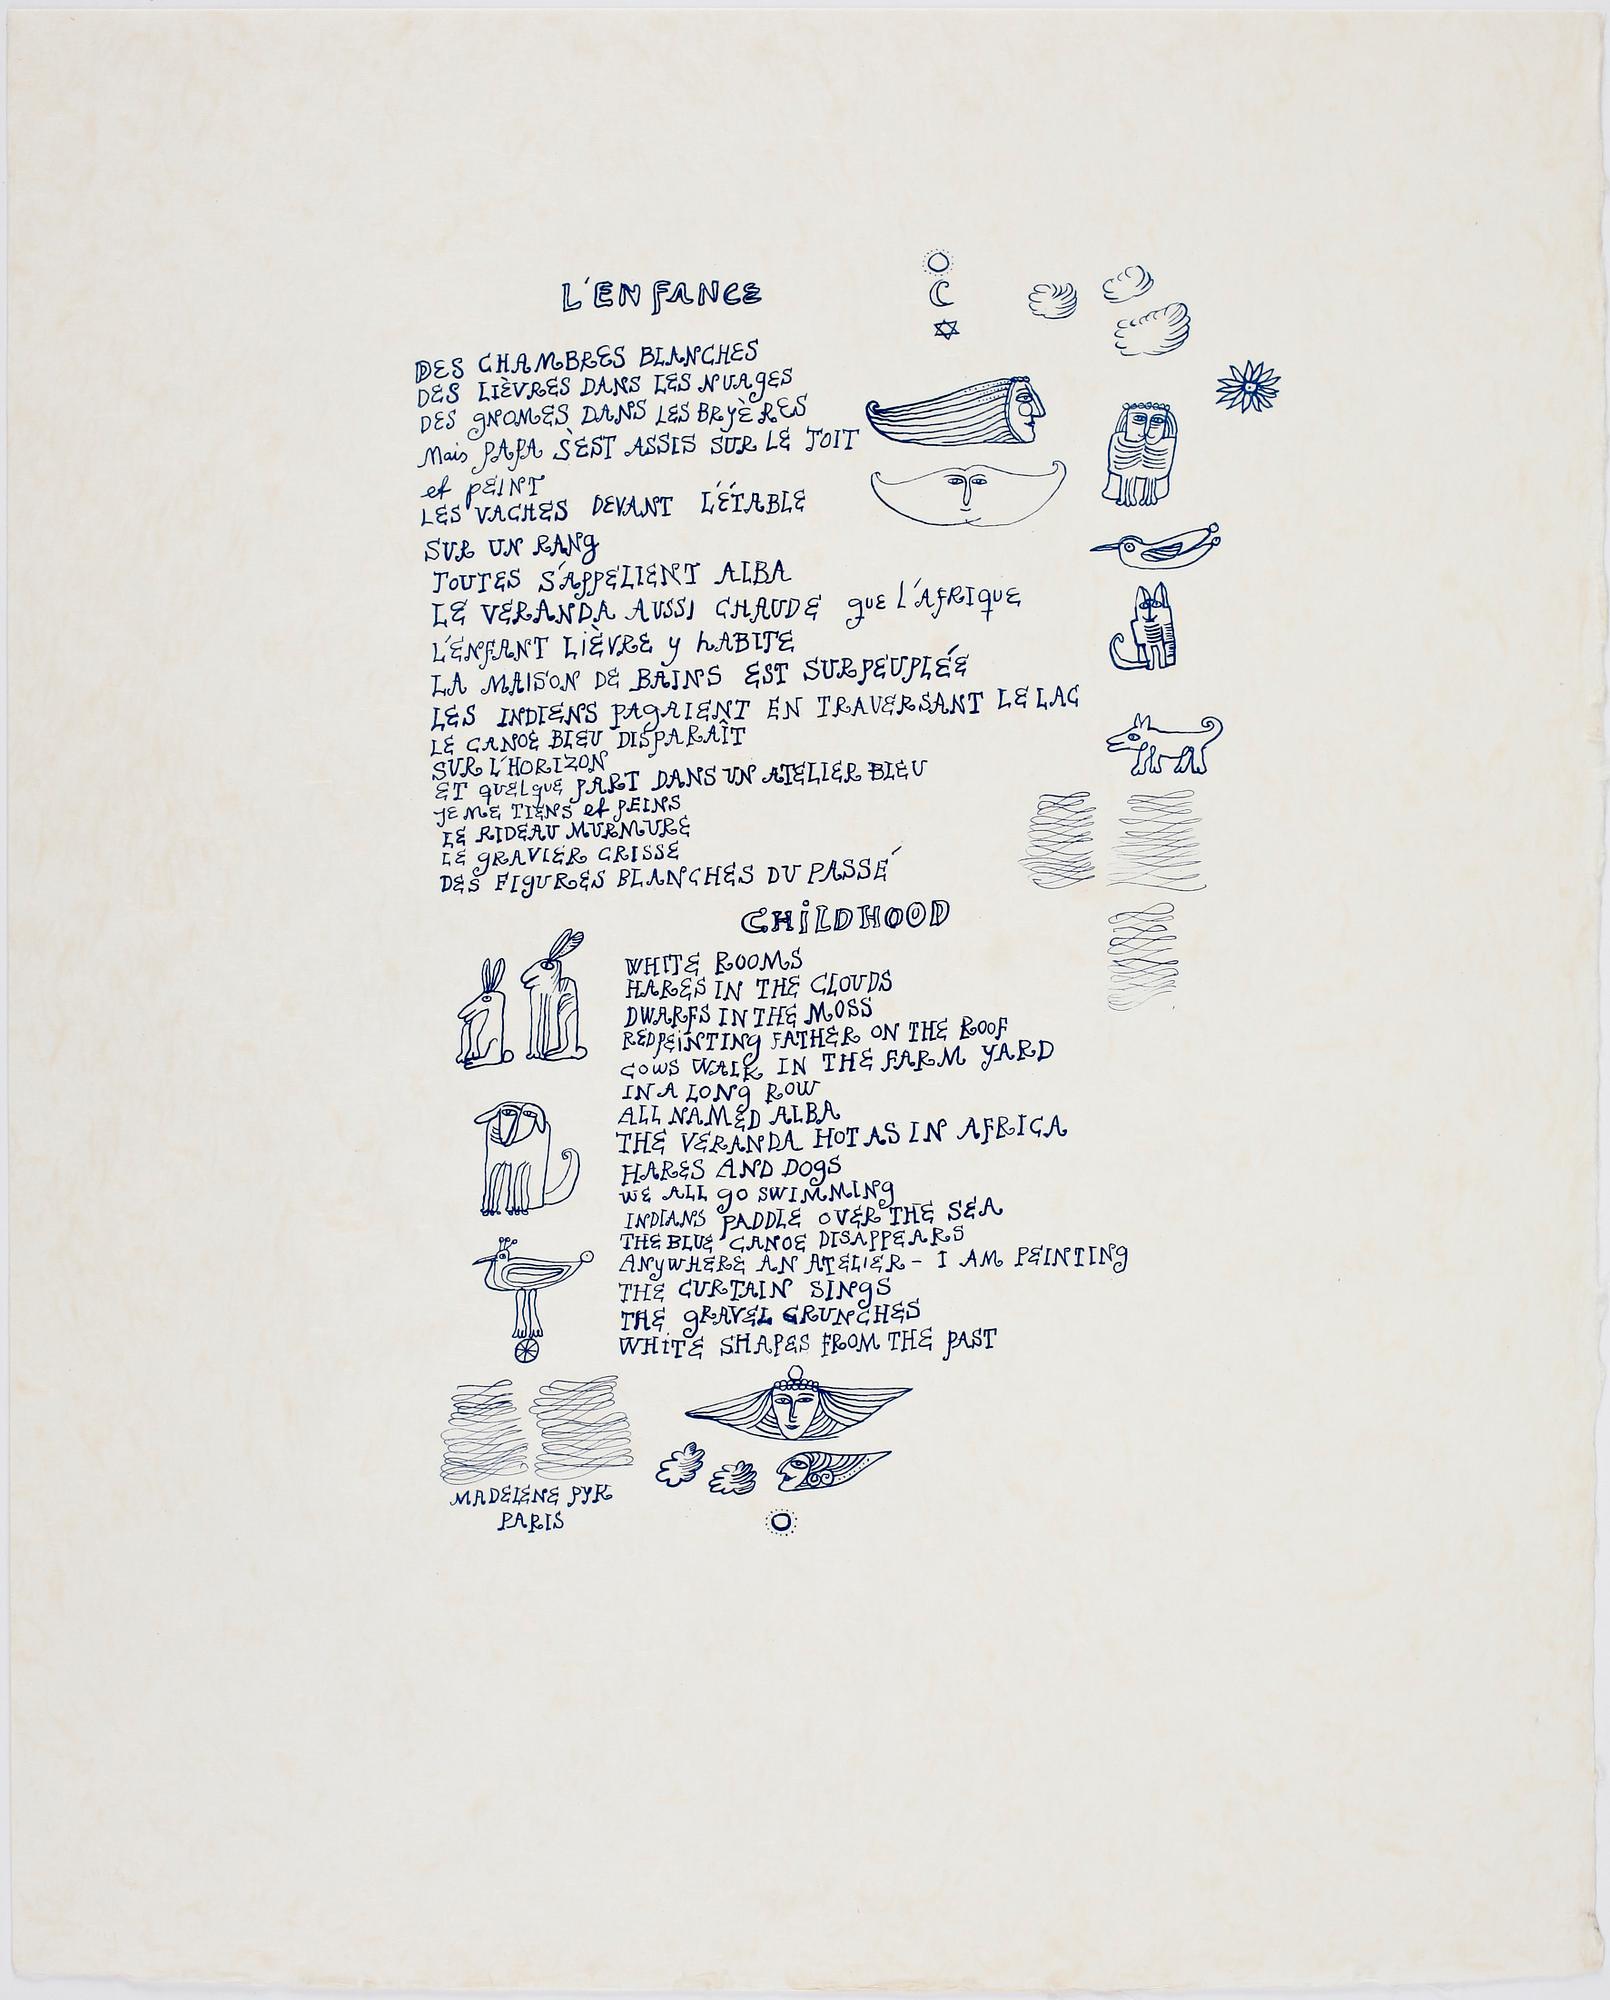 L'ENFANCE
DES CHAMBRES BLANCHES
DES LIÈVRES DANS LES NUAGES
DES GNOMES DANS LES BRYÈRES
Mais PAPA S'EST ASSIS SUR LE TOIT
et PEINT
LES VACHES DEVANT L'ÉTABLE
SUR UN RANG
TOUTES S'APPELIENT ALBA
LE VERANDA AUSSI CHAUDE QUE L'AFRIQUE
L'ENFANT LIÈVRE Y HABITE
LA MAISON DE BAINS EST SURPEUPLÉE
LES INDIENS PAGAIENT EN TRAVERSANT LE LAC
LE CANOE BLEU DISPARAÎT
SUR L'HORIZON
ET QUELQUE PART DANS UN ATELIER BLEU
JE ME TIENS et PEINS
LE RIDEAU MURMURE
LE GRAVIER CRISSE
DES FIGURES BLANCHES DU PASSÉ
CHILDHOOD
WHITE ROOMS
HARES IN THE CLOUDS
DWARFS IN THE MOSS
REDPEINTING FATHER ON THE ROOF
COWS WALK IN THE FARM YARD
IN A LONG ROW
ALL NAMED ALBA
THE VERANDA HOT AS IN AFRICA
HARES AND DOGS
WE ALL GO SWIMMING
INDIANS PADDLE OVER THE SEA
THE BLUE CANOE DISAPPEARS
ANYWHERE AN ATELIER - I AM PEINTING
THE CURTAIN SINGS
THE GRAVEL CRUNCHES
WHITE SHAPES FROM THE PAST
MADELENE PYK
PARIS